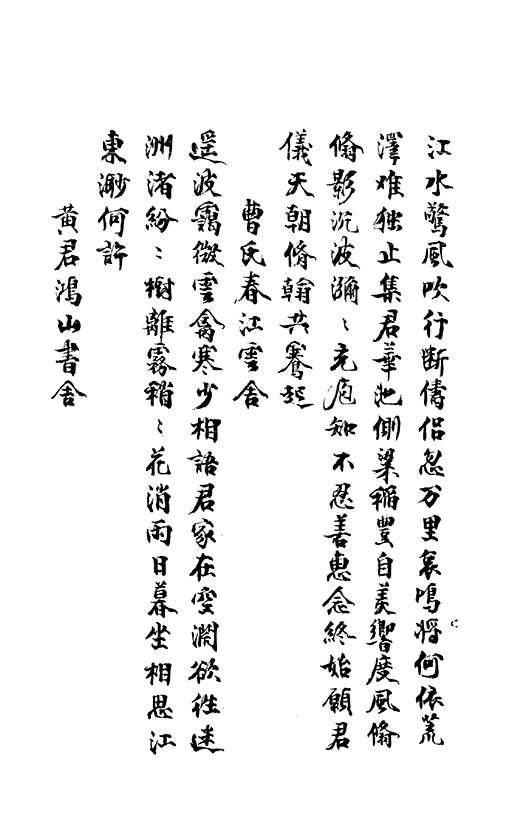 江水驚風吹行断儔侣忽万里哀鳴將何依荒
澤难独止集君華池側梁稲豐自美響度風翛
翛影沉波瀰〻充庖知不忍善惠念終始願君
儀天朝脩翰共騫起
曹氏春江雲舍
遥波靄微雲禽寒少相語君家在空洞欲往迷
洲渚紛〻樹離霧稍〻花消雨日暮坐相思江
東渺何許
黃君鴻山書舍